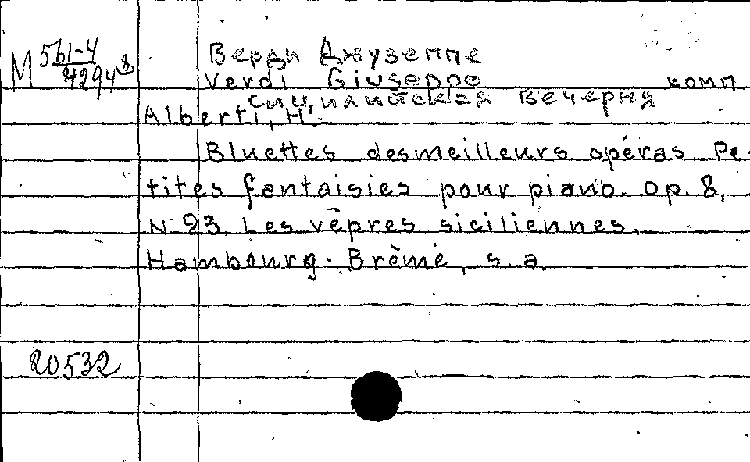 М 561-4
42948
Верди Джузеппе
Verdi Giuseppe комп
Сицилийская вечерня
Alberti, H.
Bluettes des meilleurs opéras. Pe-
tites fantaisies pour piano. op. 8,
N 23. Les vêpres siciliennes.
Hambourg. Brême, s. a.
20532